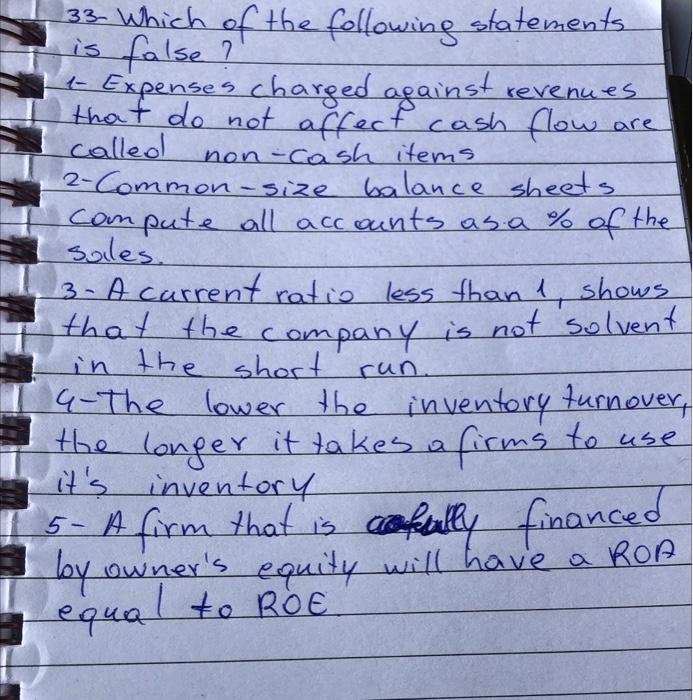 33- Which of the following statements
is false ?
1- Expenses charged against revenues
that do not affect cash flow are
called non-cash items
2-Common-size balance sheets
compute all accounts as a % of the
sales.
3- A current ratio less than 1, shows
that the company is not solvent
in the short run.
4-The lower the inventory turnover,
the longer it takes a firms to use
it's inventory
5- A firm that is fully financed
by owner's equity will have a ROA
equal to ROE